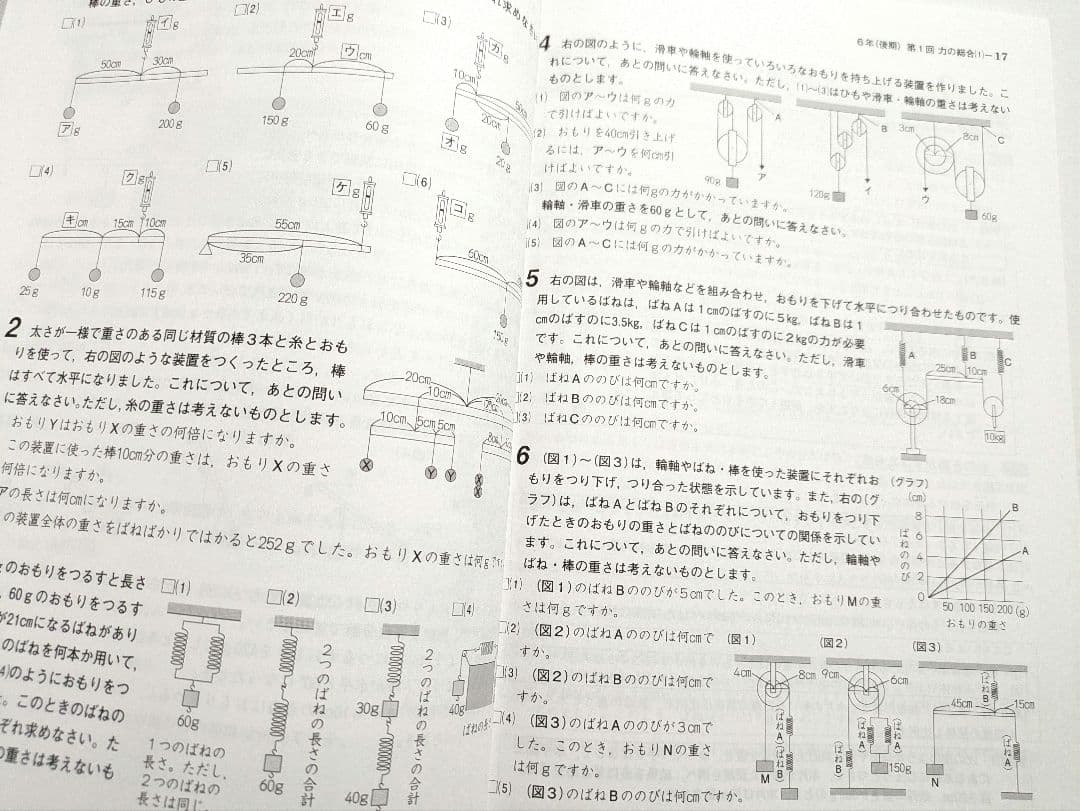 □(1)
イg
50cm
30cm
ア g
200g
□(2)
エ g
20cm
ウ cm
150g
60g
□(3)
カ g
10cm
20cm
オ g
20g
□(4)
ク g
キ cm
15cm
10cm
25g
10g
115g
□(5)
ケ g
55cm
35cm
220g
□(6)
コ g
60cm
2 太さが一様で重さのある同じ材質の棒3本と糸とおも
りを使って，右の図のような装置をつくったところ，棒
はすべて水平になりました。これについて，あとの問い
に答えなさい。ただし，糸の重さは考えないものとします。
おもりYはおもりXの重さの何倍になりますか。
この装置に使った棒10cm分の重さは，おもりXの重さ
何倍になりますか。
アの長さは何cmになりますか。
の装置全体の重さをばねばかりではかると252gでした。おもりXの重さは何gで
20cm
10cm
10cm
5cm
5cm
X
Y
Y
X
X
のおもりをつるすと長さ
，60gのおもりをつるす
が21cmになるばねがあり
のばねを何本か用いて，
(4)のようにおもりをつ
。このときのばねの
ぞれ求めなさい。た
の重さは考えないも
□(1)
60g
1つのばねの
長さ。ただし，
2つのばねの
長さは同じ。
□(2)
60g
2つのばねの長さの合計
□(3)
30g
40g
2つのばねの長さの合計
□(4)
40g
6年(後期) 第1回 力の総合(1)−17
4 右の図のように，滑車や輪軸を使っていろいろなおもりを持ち上げる装置を作りました。こ
れについて，あとの問いに答えなさい。ただし，(1)〜(3)はひもや滑車・輪軸の重さは考えない
ものとします。
(1) 図のア〜ウは何gの力
で引けばよいですか。
(2) おもりを40cm引き上げ
るには，ア〜ウを何cm引
けばよいですか。
(3) 図のA〜Cには何gの力がかかっていますか。
輪軸・滑車の重さを60gとして，あとの問いに答えなさい。
(4) 図のア〜ウは何gの力で引けばよいですか。
(5) 図のA〜Cには何gの力がかかっていますか。
A
90g
ア
B
120g
イ
3cm
8cm
C
ウ
60g
5 右の図は，滑車や輪軸などを組み合わせ，おもりを下げて水平につり合わせたものです。使
用しているばねは，ばねAは1cmのばすのに5kg，ばねBは1
cmのばすのに3.5kg，ばねCは1cmのばすのに2kgの力が必要
です。これについて，あとの問いに答えなさい。ただし，滑車
や輪軸，棒の重さは考えないものとします。
(1) ばねAののびは何cmですか。
(2) ばねBののびは何cmですか。
(3) ばねCののびは何cmですか。
A
B
C
25cm
10cm
6cm
18cm
10kg
6 (図1)〜(図3)は，輪軸やばね・棒を使った装置にそれぞれお
もりをつり下げ，つり合った状態を示しています。また，右の(グ
ラフ)は，ばねAとばねBのそれぞれについて，おもりをつり下
げたときのおもりの重さとばねののびについての関係を示してい
ます。これについて，あとの問いに答えなさい。ただし，輪軸や
ばね・棒の重さは考えないものとします。
(1) (図1)のばねBののびが5cmでした。このとき，おもりMの重
さは何gですか。
□(2) (図2)のばねAののびは何cmで
すか。
(3) (図2)のばねBののびは何cmで
すか。
(4) (図3)のばねAののびが3cmで
した。このとき，おもりNの重さ
は何gですか。
(5) (図3)のばねBののびは何cmですか。
(グラフ)
(cm)
8
6
4
2
0
ばねののび
B
A
50 100 150 200 (g)
おもりの重さ
(図1)
4cm
8cm
(ばねA)
(ばねB)
M
(図2)
9cm
6cm
(ばねB)
(ばねA)
(ばねA)
150g
(図3)
(ばねB)
45cm
15cm
(ばねA)
N